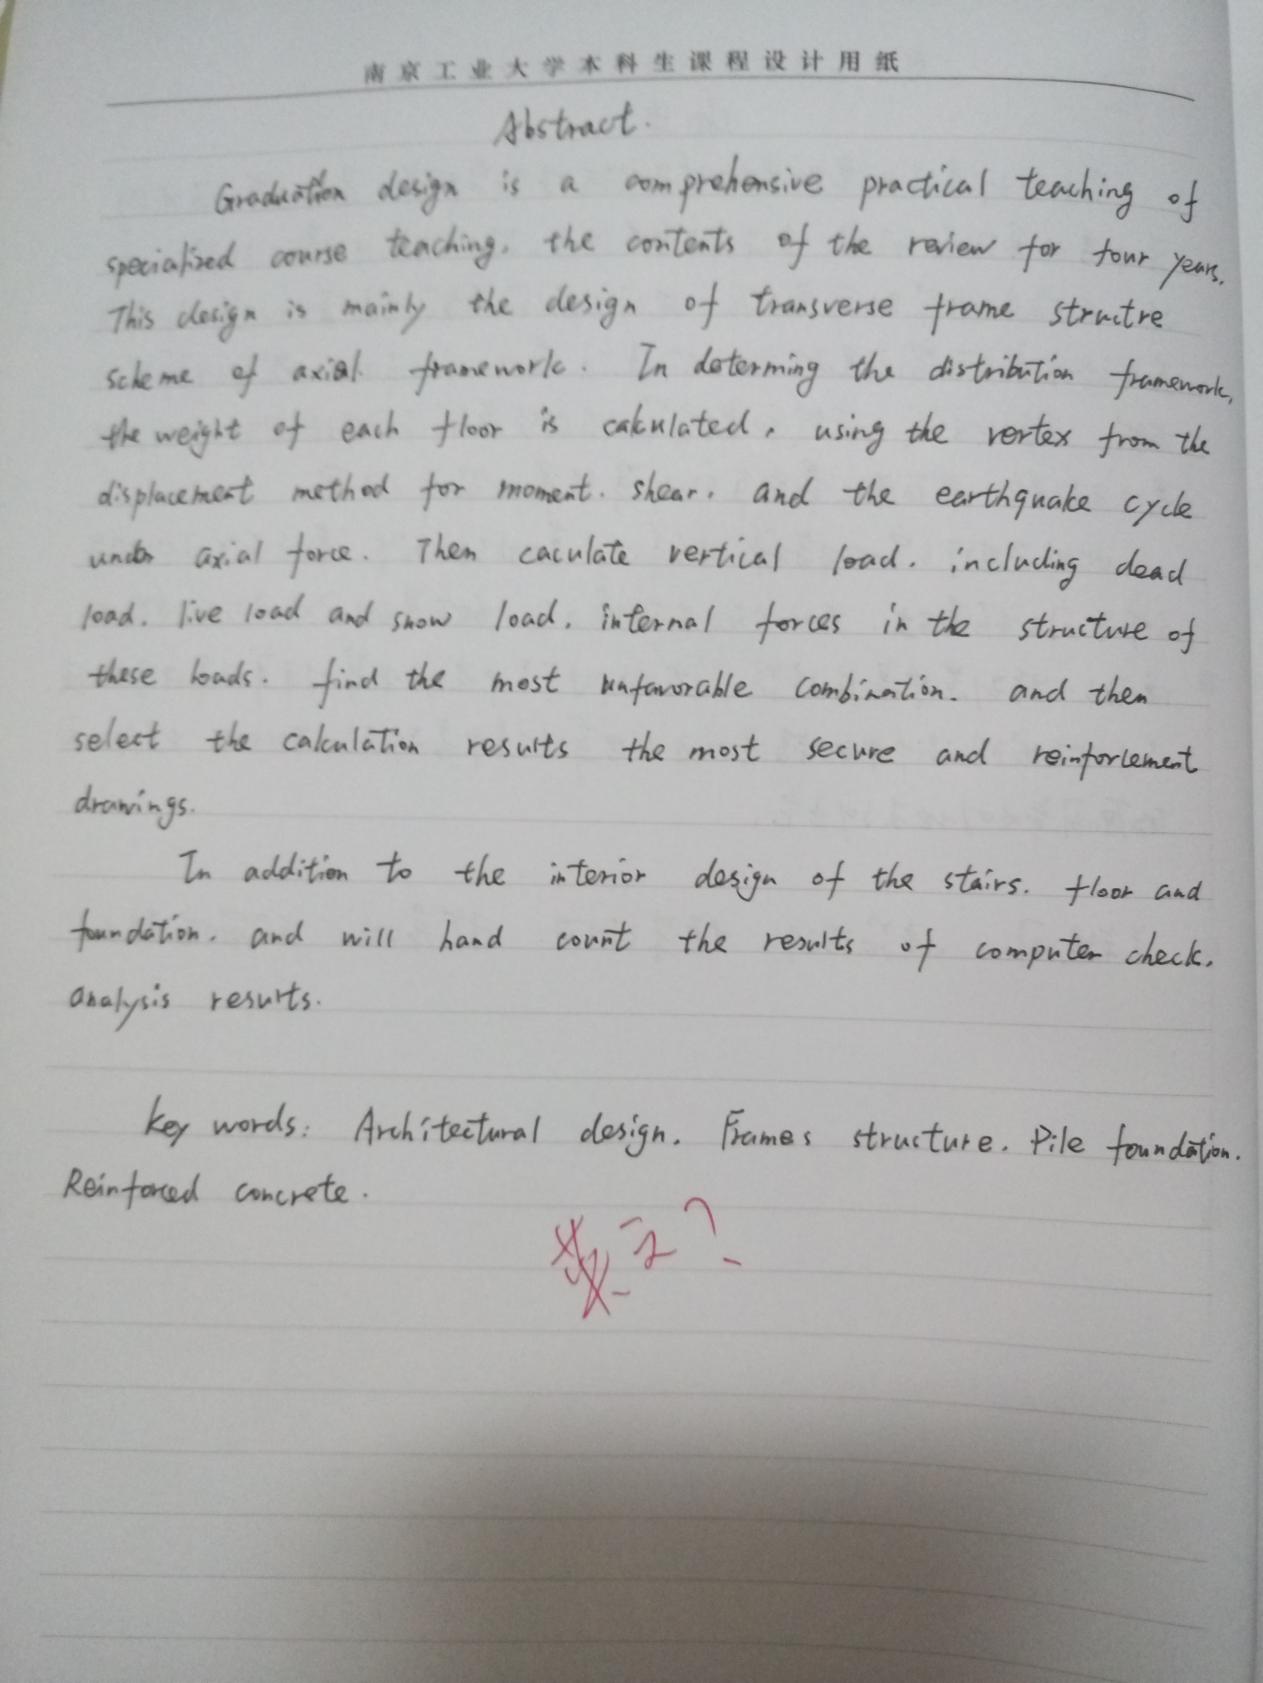 南京工业大学本科生课程设计用纸
Abstract.
Graduation design is a comprehensive practical teaching of
specialized course teaching, the contents of the review for four years.
This design is mainly the design of transverse frame structre
scheme of axial framework. In determing the distribution framework,
the weight of each floor is calculated, using the vertex from the
displacement method for moment, shear, and the earthquake cycle
under axial force. Then caculate vertical load, including dead
load, live load and snow load, internal forces in the structure of
these loads. find the most unfavorable combination. and then
select the calculation results the most secure and reinforcement
drawings.
In addition to the interior design of the stairs, floor and
foundation, and will hand count the results of computer check,
analysis results.
Key words: Architectural design. Frames structure. Pile foundation.
Reinforced concrete.